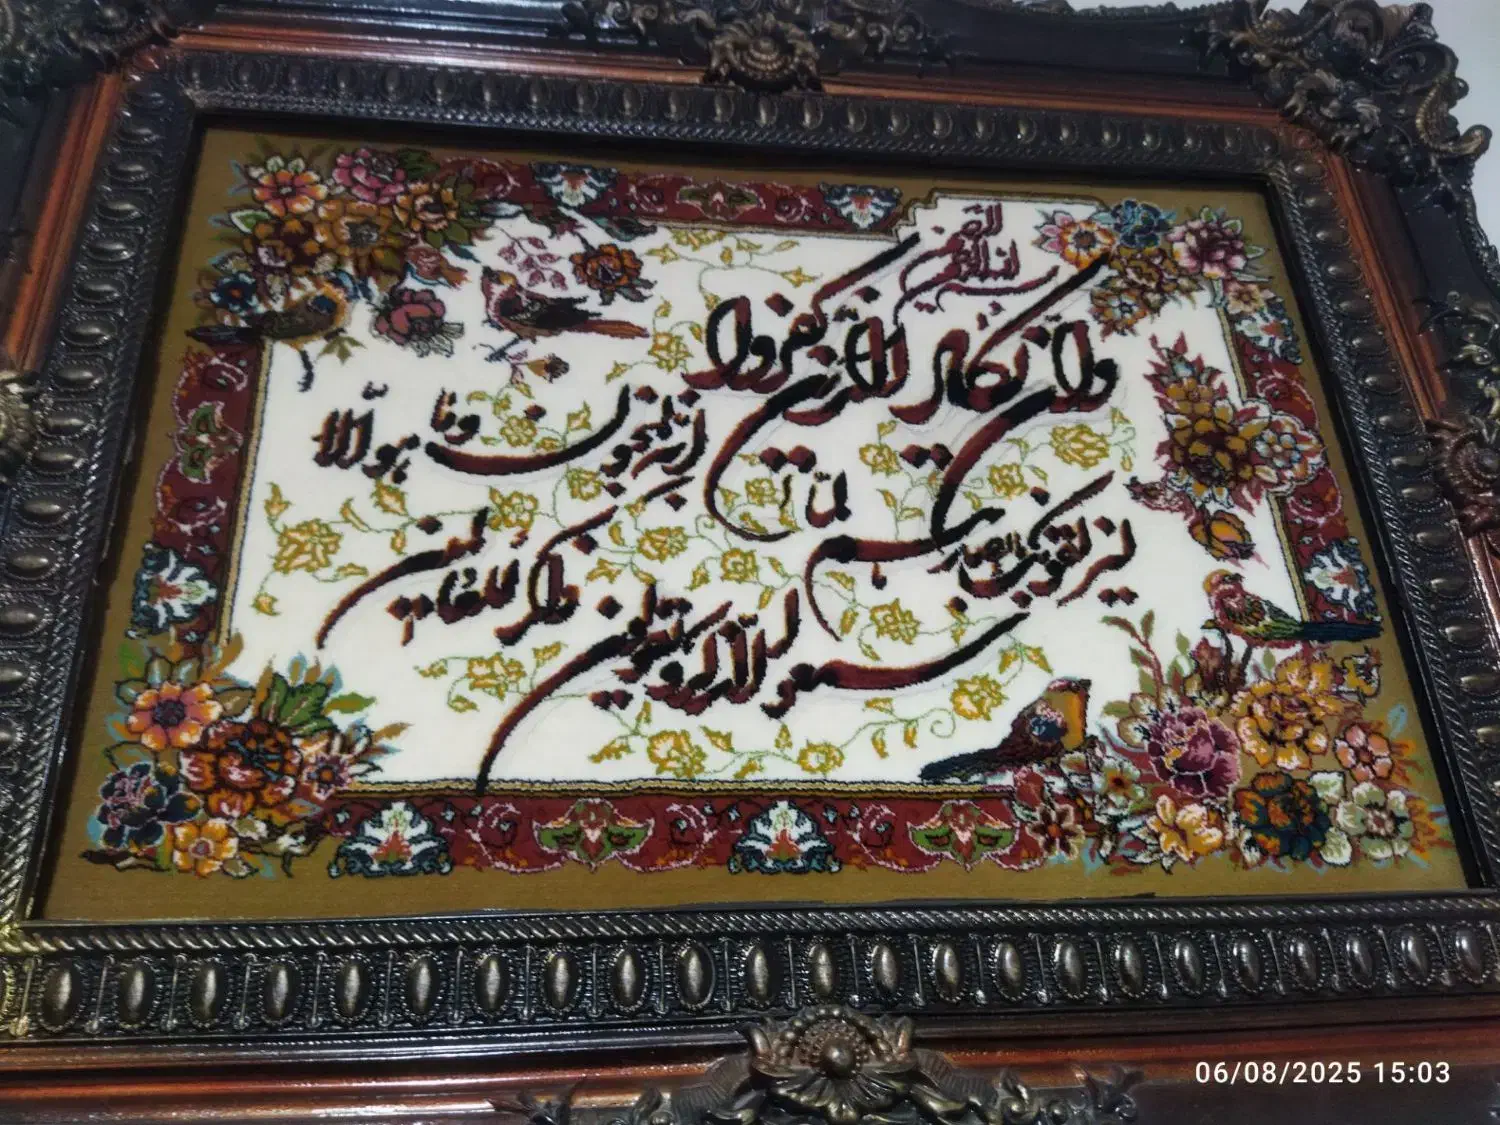 بسم الله الرحمن الرحیم
وان یکاد الذین کفروا
لیزلقونک بابصارهم لما
سمعوا الذکر و یقولون
انه لمجنون وما هو الا
ذکر للعالمین
06/08/2025 15:03